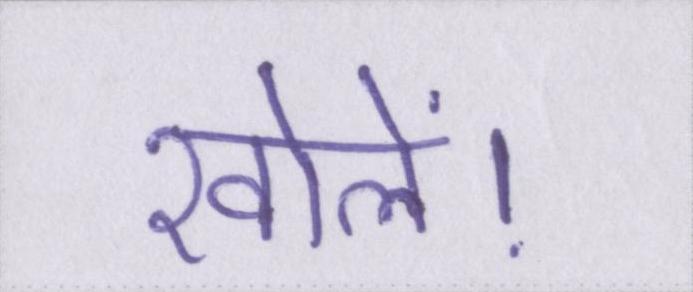 खोलें!